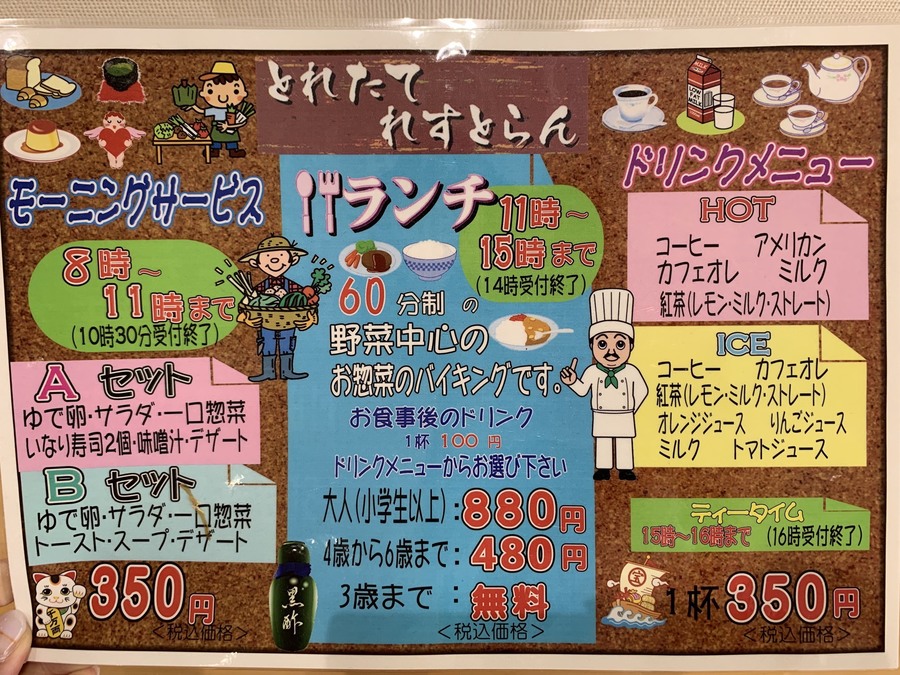 とれたて
れすとらん
モーニングサービス
8時〜
11時まで
(10時30分受付終了)
A セット
ゆで卵・サラダ・一口惣菜
いなり寿司2個・味噌汁・デザート
B セット
ゆで卵・サラダ・一口惣菜
トースト・スープ・デザート
350円
<税込価格>
ランチ
11時〜
15時まで
(14時受付終了)
60分制の
野菜中心の
お惣菜のバイキングです。
お食事後のドリンク
1杯 100 円
ドリンクメニューからお選び下さい
大人(小学生以上):880円
4歳から6歳まで:480円
3歳まで:無料
<税込価格>
黒酢
ドリンクメニュー
LOW FAT MILK
HOT
コーヒー アメリカン
カフェオレ ミルク
紅茶(レモン・ミルク・ストレート)
ICE
コーヒー カフェオレ
紅茶(レモン・ミルク・ストレート)
オレンジジュース りんごジュース
ミルク トマトジュース
ティータイム
15時〜16時まで (16時受付終了)
宝
1杯350円
<税込価格>